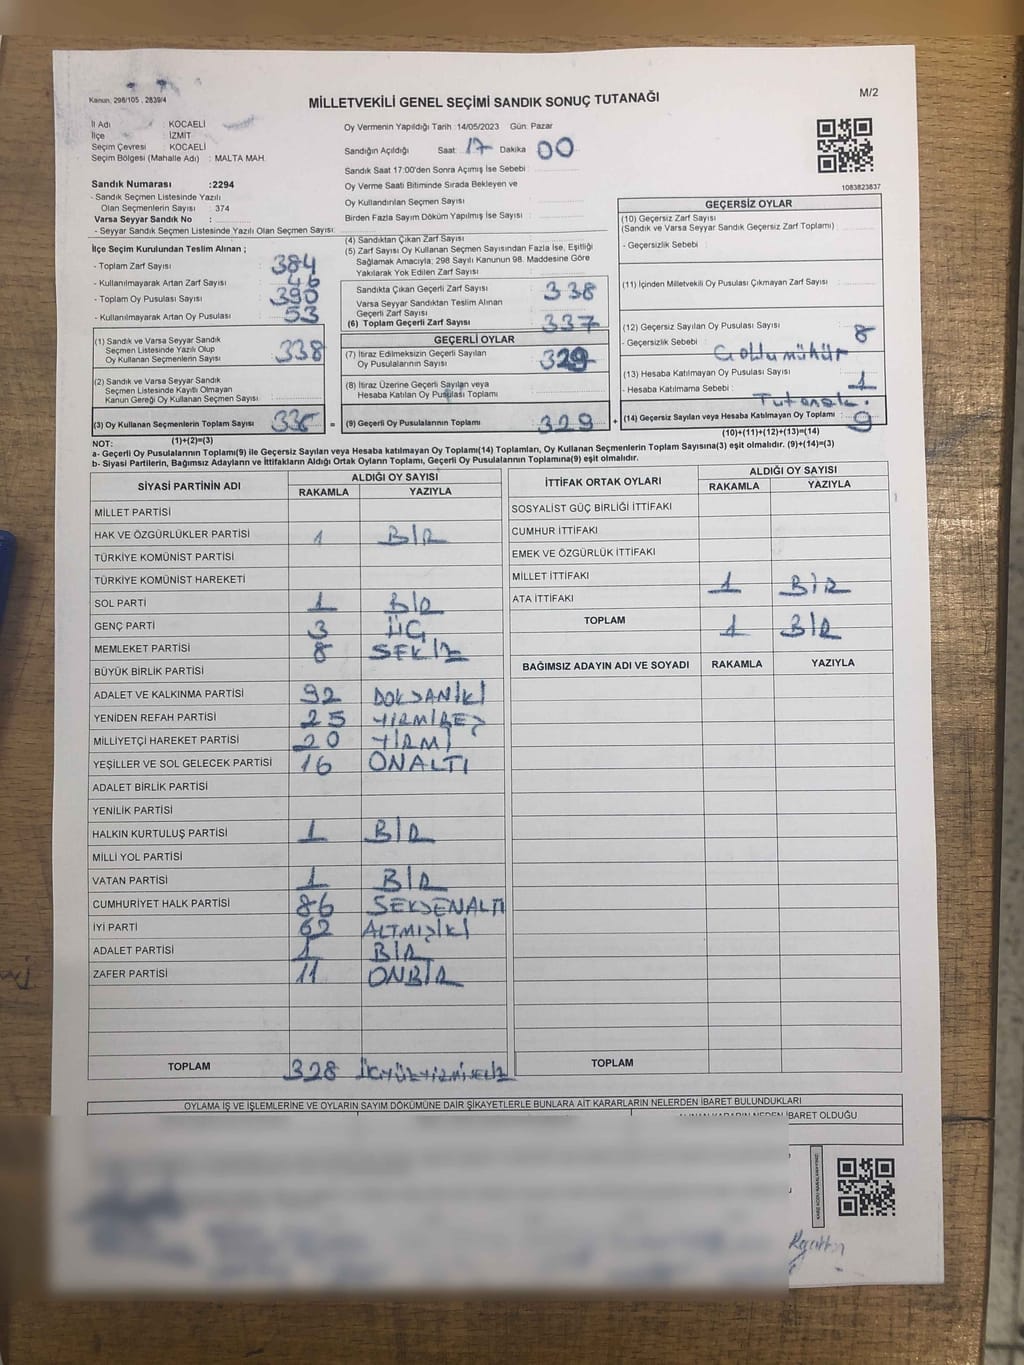 Kanun, 298/105 , 2839/4
MİLLETVEKİLİ GENEL SEÇİMİ SANDIK SONUÇ TUTANAĞI
M/2
İl Adı : KOCAELİ
İlçe : İZMİT
Seçim Çevresi : KOCAELİ
Seçim Bölgesi (Mahalle Adı) : MALTA MAH.
Sandık Numarası :2294
- Sandık Seçmen Listesinde Yazılı
Olan Seçmenlerin Sayısı : 374
Varsa Seyyar Sandık No :
- Seyyar Sandık Seçmen Listesinde Yazılı Olan Seçmen Sayısı:
Oy Vermenin Yapıldığı Tarih :14/05/2023 Gün: Pazar
Sandığın Açıldığı Saat: 17 Dakika 00
Sandık Saat 17:00'den Sonra Açımış İse Sebebi :
Oy Verme Saati Bitiminde Sırada Bekleyen ve
Oy Kullandırılan Seçmen Sayısı :
Birden Fazla Sayım Döküm Yapılmış İse Sayısı :
1083823837
İlçe Seçim Kurulundan Teslim Alınan ;
- Toplam Zarf Sayısı : 384
- Kullanılmayarak Artan Zarf Sayısı : 46
- Toplam Oy Pusulası Sayısı : 390
- Kullanılmayarak Artan Oy Pusulası : 53
(1) Sandık ve Varsa Seyyar Sandık
Seçmen Listesinde Yazılı Olup
Oy Kullanan Seçmenlerin Sayısı : 338
(2) Sandık ve Varsa Seyyar Sandık
Seçmen Listesinde Kayıtlı Olmayan
Kanun Gereği Oy Kullanan Seçmen Sayısı :
(3) Oy Kullanan Seçmenlerin Toplam Sayısı :
(1)+(2)=(3)
(4) Sandıktan Çıkan Zarf Sayısı :
(5) Zarf Sayısı Oy Kullanan Seçmen Sayısından Fazla İse, Eşitliği
Sağlamak Amacıyla; 298 Sayılı Kanunun 98. Maddesine Göre
Yakılarak Yok Edilen Zarf Sayısı :
Sandıkta Çıkan Geçerli Zarf Sayısı : 338
Varsa Seyyar Sandıktan Teslim Alınan
Geçerli Zarf Sayısı :
(6) Toplam Geçerli Zarf Sayısı : 337
GEÇERLİ OYLAR
(7) İtiraz Edilmeksizin Geçerli Sayılan
Oy Pusulalarının Sayısı : 329
(8) İtiraz Üzerine Geçerli Sayılan veya
Hesaba Katılan Oy Pusulası Toplamı :
= (9) Geçerli Oy Pusulalarının Toplamı : 329 +
GEÇERSİZ OYLAR
(10) Geçersiz Zarf Sayısı :
(Sandık ve Varsa Seyyar Sandık Geçersiz Zarf Toplamı)
- Geçersizlik Sebebi :
(11) İçinden Milletvekili Oy Pusulası Çıkmayan Zarf Sayısı :
(12) Geçersiz Sayılan Oy Pusulası Sayısı : 8
- Geçersizlik Sebebi :
(13) Hesaba Katılmayan Oy Pusulası Sayısı : 1
- Hesaba Katılmama Sebebi :
(14) Geçersiz Sayılan veya Hesaba Katılmayan Oy Toplamı : 9
(10)+(11)+(12)+(13)=(14)
NOT:
a- Geçerli Oy Pusulalarının Toplamı(9) ile Geçersiz Sayılan veya Hesaba katılmayan Oy Toplamı(14) Toplamları, Oy Kullanan Seçmenlerin Toplam Sayısına(3) eşit olmalıdır. (9)+(14)=(3)
b- Siyasi Partilerin, Bağımsız Adayların ve İttifakların Aldığı Ortak Oyların Toplamı, Geçerli Oy Pusulalarının Toplamına(9) eşit olmalıdır.
SİYASİ PARTİNİN ADI ALDIĞI OY SAYISI
RAKAMLA YAZIYLA
MİLLET PARTİSİ
HAK VE ÖZGÜRLÜKLER PARTİSİ 1 BİR
TÜRKİYE KOMÜNİST PARTİSİ
TÜRKİYE KOMÜNİST HAREKETİ
SOL PARTİ 1 BİR
GENÇ PARTİ 3 ÜÇ
MEMLEKET PARTİSİ 8 SEKİZ
BÜYÜK BİRLİK PARTİSİ
ADALET VE KALKINMA PARTİSİ 92 DOKSANİKİ
YENİDEN REFAH PARTİSİ 25 YİRMİBEŞ
MİLLİYETÇİ HAREKET PARTİSİ 20 YİRMİ
YEŞİLLER VE SOL GELECEK PARTİSİ 16 ONALTI
ADALET BİRLİK PARTİSİ
YENİLİK PARTİSİ
HALKIN KURTULUŞ PARTİSİ 1 BİR
MİLLİ YOL PARTİSİ
VATAN PARTİSİ 1 BİR
CUMHURİYET HALK PARTİSİ 86 SEKSENALTI
İYİ PARTİ 62 ALTMIŞİKİ
ADALET PARTİSİ 1 BİR
ZAFER PARTİSİ 11 ONBİR
TOPLAM 328
İTTİFAK ORTAK OYLARI ALDIĞI OY SAYISI
RAKAMLA YAZIYLA
SOSYALİST GÜÇ BİRLİĞİ İTTİFAKI
CUMHUR İTTİFAKI
EMEK VE ÖZGÜRLÜK İTTİFAKI
MİLLET İTTİFAKI 1 BİR
ATA İTTİFAKI
TOPLAM 1 BİR
BAĞIMSIZ ADAYIN ADI VE SOYADI RAKAMLA YAZIYLA
TOPLAM
OYLAMA İŞ VE İŞLEMLERİNE VE OYLARIN SAYIM DÖKÜMÜNE DAİR ŞİKAYETLERLE BUNLARA AİT KARARLARIN NELERDEN İBARET BULUNDUKLARI